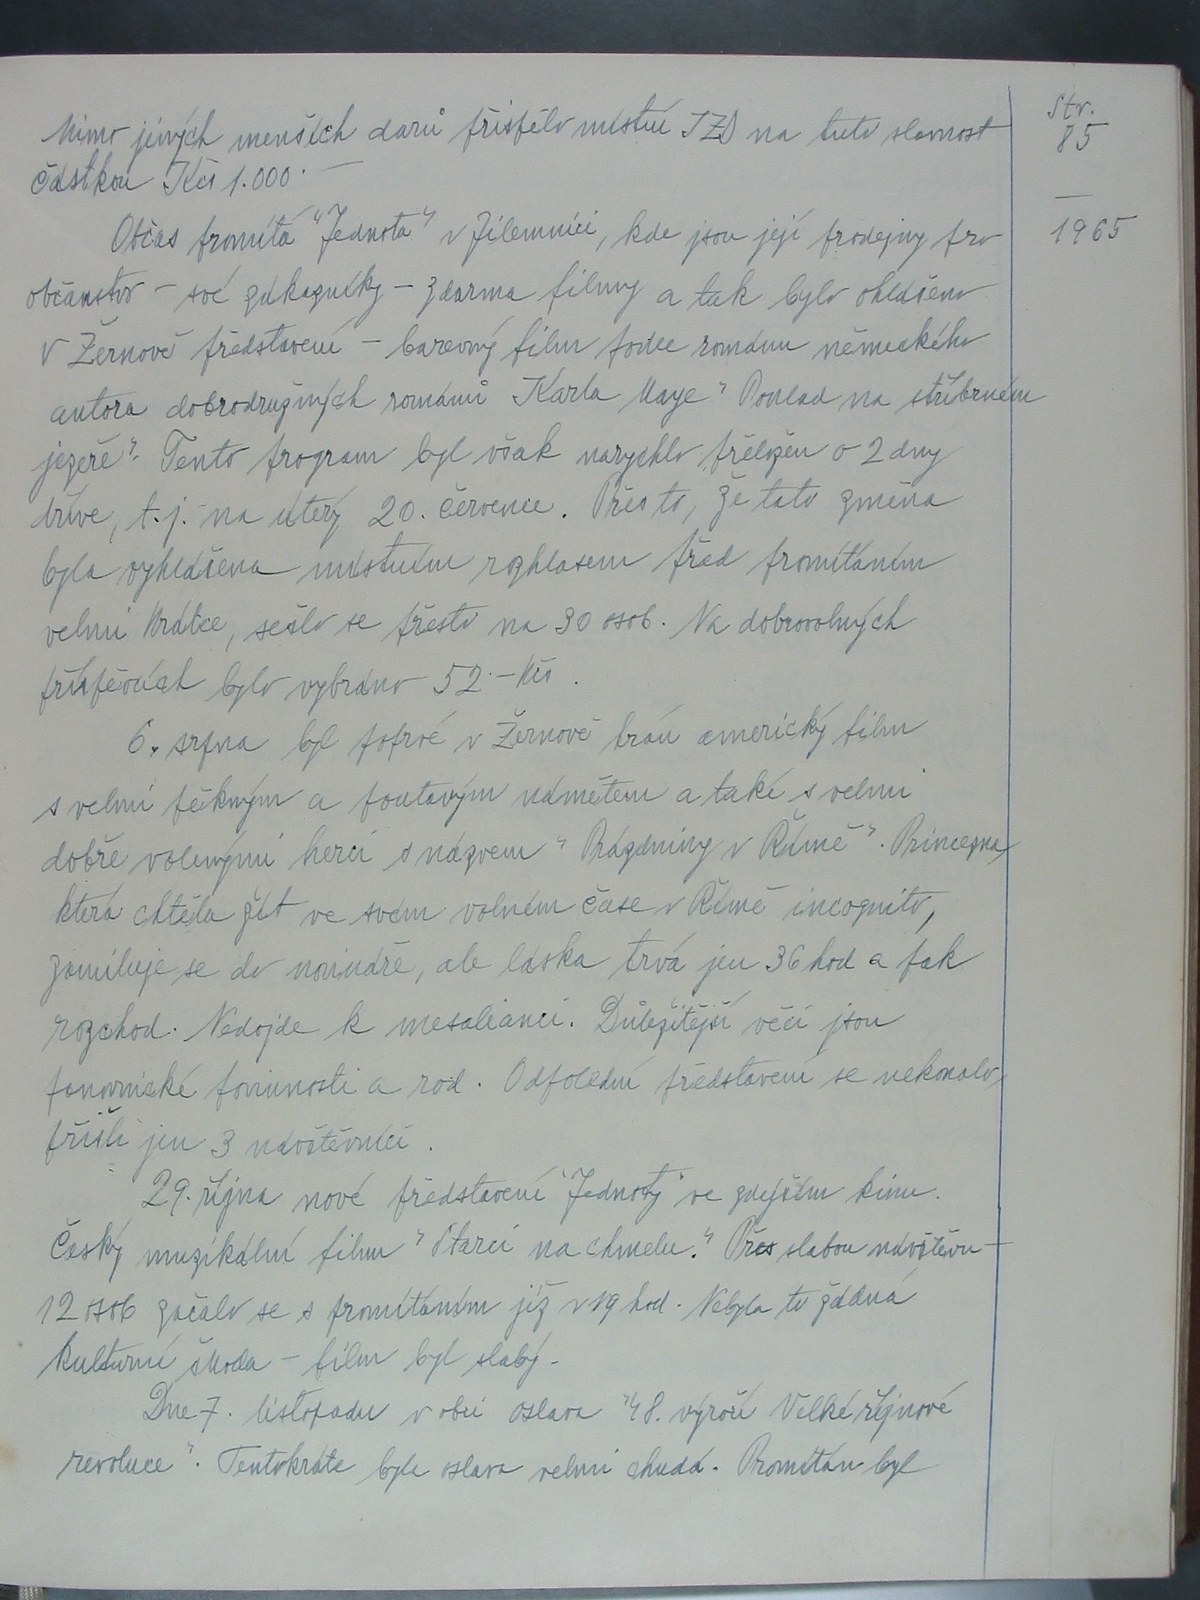 Str.
85
—
1965
Mimo jiných menších darů přispělo místní JZD na tuto slavnost
částkou Kčs 1.000.—
Občas promítá "Jednota" v Jilemnici, kde jsou její prodejny pro
občanstvo – své zákazníky – zdarma filmy a tak bylo ohlášeno
v Žernově představení – barevný film podle románu německého
autora dobrodružných románů Karla Maye "Poklad na stříbrném
jezeře". Tento program byl však narychlo přeložen o 2 dny
dříve, t.j. na úterý 20. července. Přes to, že tato změna
byla vyhlášena místním rozhlasem před promítáním
velmi krátce, sešlo se přesto na 30 osob. Na dobrovolných
příspěvcích bylo vybráno 52.– Kčs.
6. srpna byl poprvé v Žernově brán americký film
s velmi pěkným a poutavým námětem a také s velmi
dobře volenými herci s názvem "Prázdniny v Římě". Princezna,
která chtěla žít ve svém volném čase v Římě incognito,
zamiluje se do novináře, ale láska trvá jen 36 hod a pak
rozchod. Nedojde k mesalianci. Důležitější věcí jsou
panovnické povinnosti a rod. Odpolední představení se nekonalo,
přišli jen 3 návštěvníci.
29. října nové představení "Jednoty" ve zdejším kinu.
Český muzikální film "Starci na chmelu." Přes slabou návštěvu –
12 osob začalo se s promítáním již v 19 hod. Nebyla to žádná
kulturní škoda – film byl slabý.
Dne 7. listopadu v obci oslava "48. výročí Velké říjnové
revoluce". Tentokráte byla oslava velmi chudá. Promítán byl